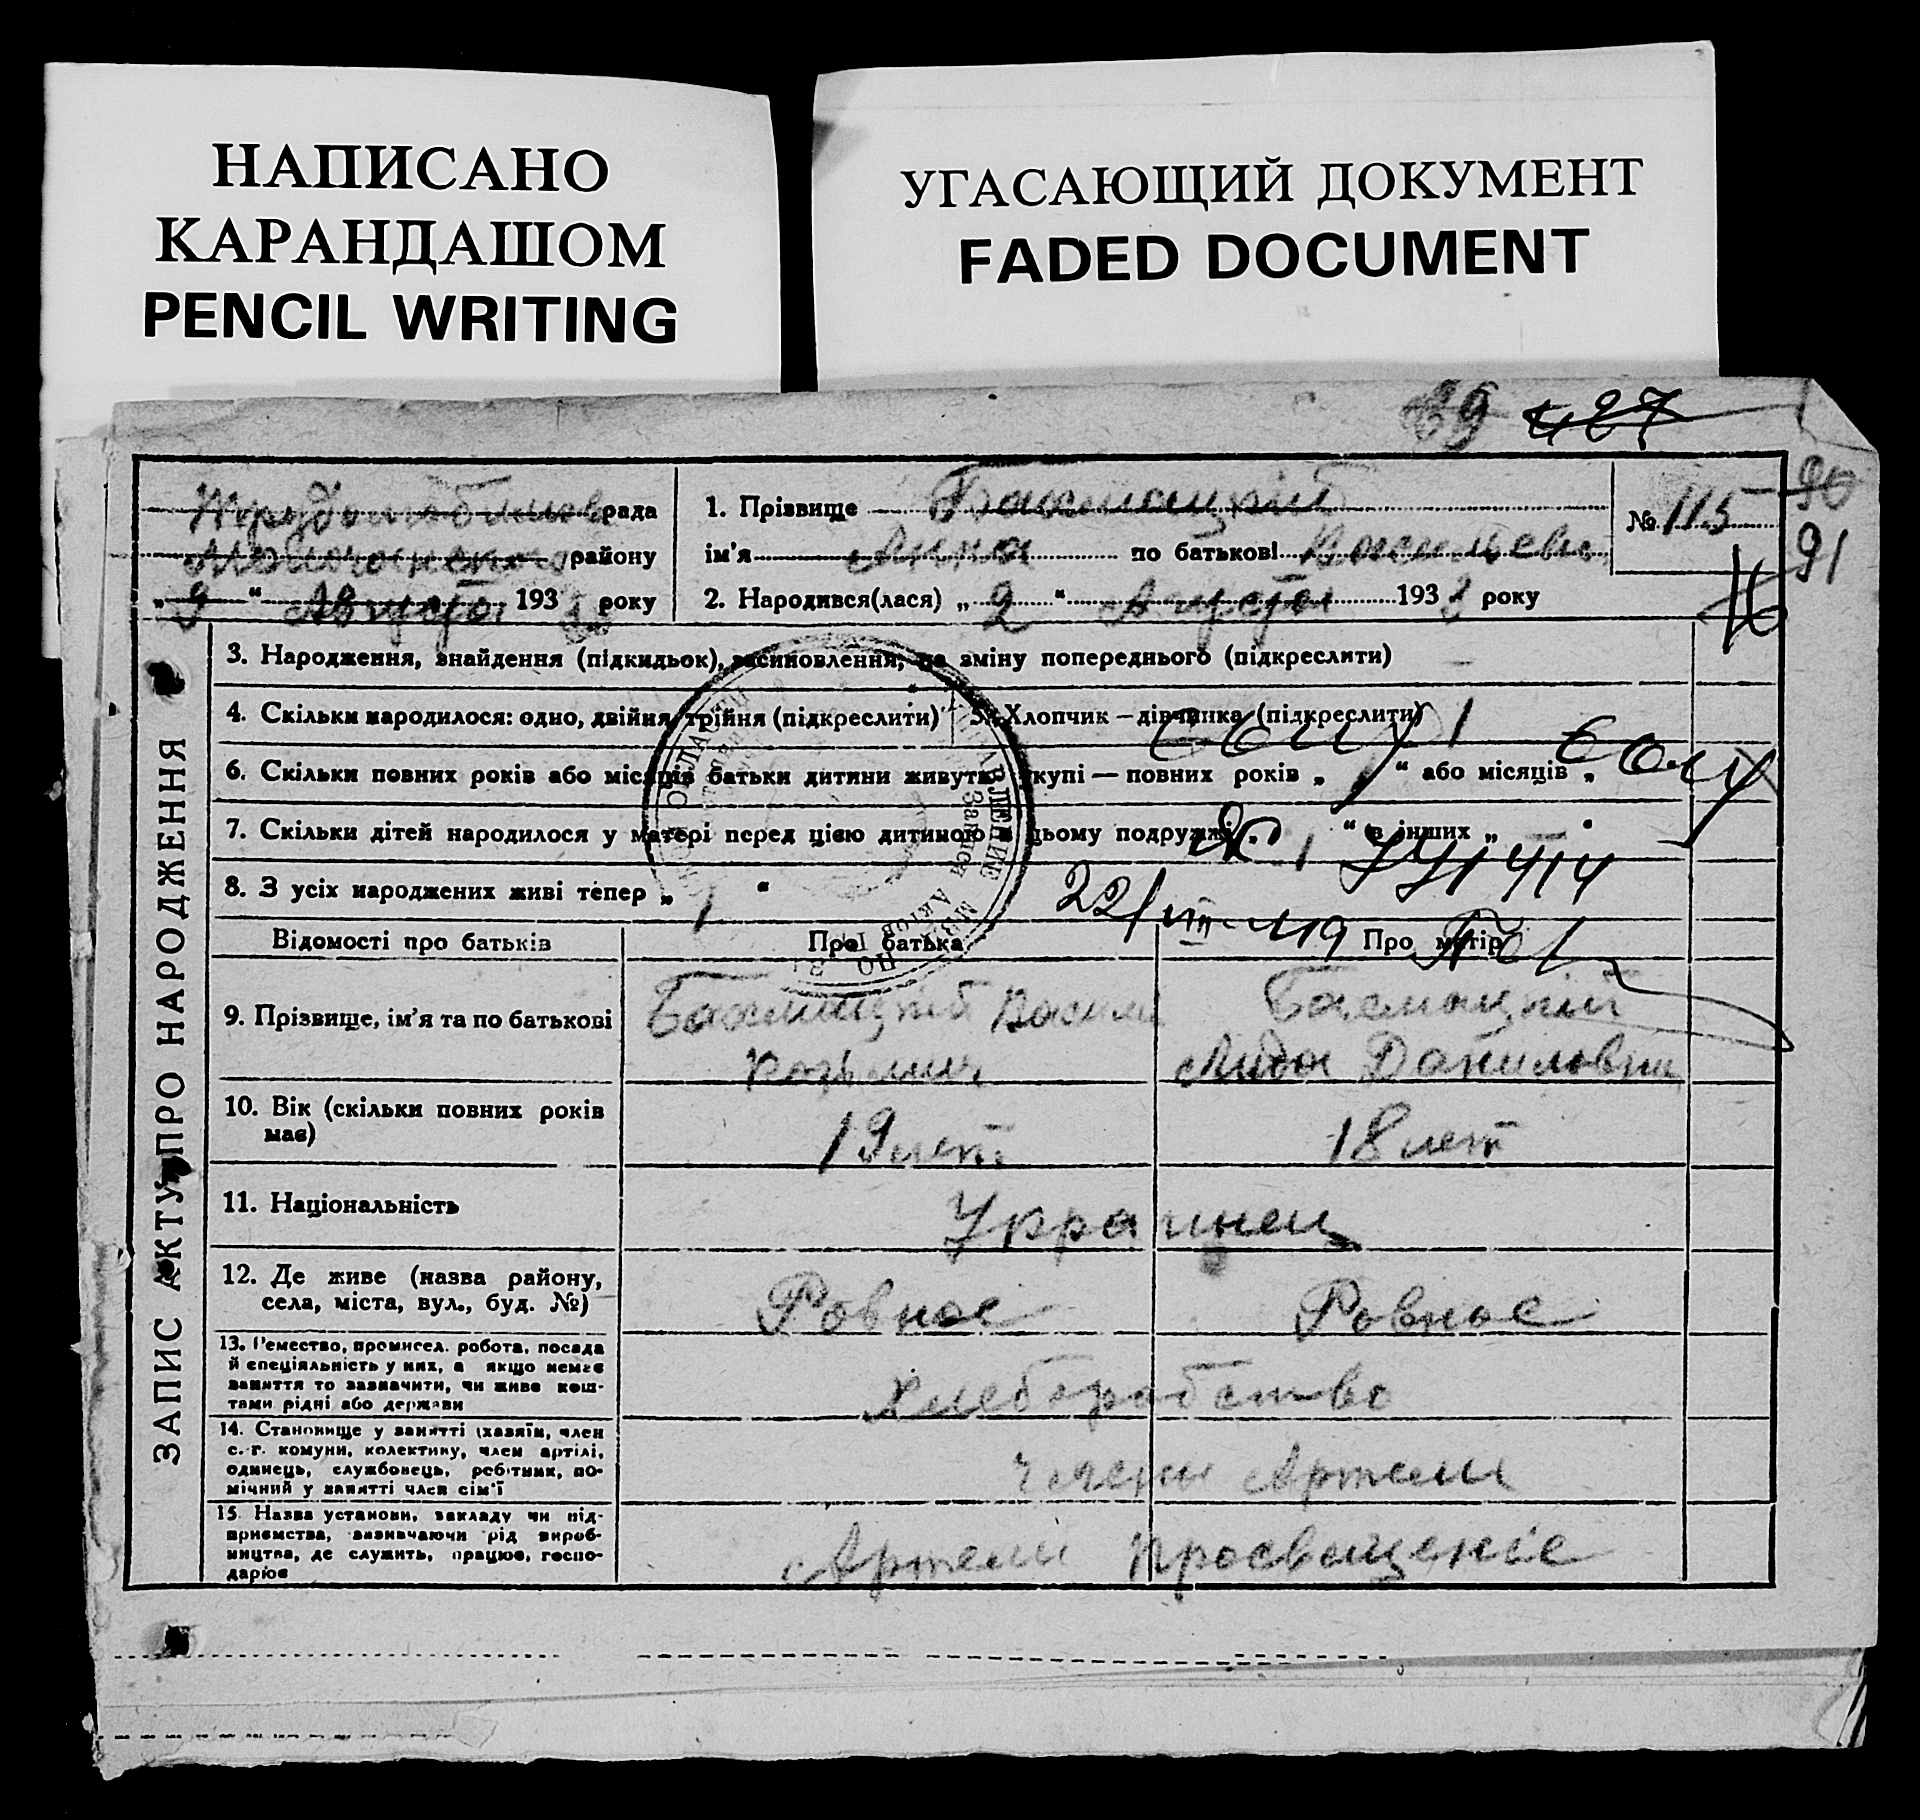 НАПИСАНО
КАРАНДАШОМ
PENCIL WRITING
УГАСАЮЩИЙ ДОКУМЕНТ
FADED DOCUMENT
89 427
90
91
рада
району
„ 9 “ Августа 193 3 року
1. Прізвище Басмацкій
ім'я Анна по батькові
2. Народився(лася) „ 2 “ Августа 193 3 року
№ 115
ЗАПИС АКТУ ПРО НАРОДЖЕННЯ
3. Народження, знайдення (підкидьок), засиновлення, на зміну попереднього (підкреслити)
4. Скільки народилося: одно, двійня, трійня (підкреслити) 5. Хлопчик — дівчинка (підкреслити)
6. Скільки повних років або місяців батьки дитини живуть вкупі — повних років „ 1 “ або місяців „
7. Скільки дітей народилося у матері перед цією дитиною в цьому подружжі „ “ в інших „
8. З усіх народжених живі тепер „ 1 “
22/VIII-49
Відомості про батьків Про батька Про матір
9. Прізвище, ім'я та по батькові
Басмацкій Басмацкій
Лида Даниловна
10. Вік (скільки повних років
має)
19 лет 18 лет
11. Національність
Украинец
12. Де живе (назва району,
села, міста, вул., буд. №)
Ровное Ровное
13. Ремество, промисел. робота, посада
й спеціяльність у них, а якщо немає
заняття то зазначити, чи живе кош-
тами рідні або держави
Хлеборобство
14. Становище у занятті (хазяїн, член
с.-г. комуни, колективу, член артілі,
одинець, службовець, робітник, по-
мічний у занятті член сім'ї
Члены Артели
15. Назва установи, закладу чи під-
приємства, визначаючи рід вироб-
ництва, де служить, працює, госпо-
дарює
Артели Просвещеніе